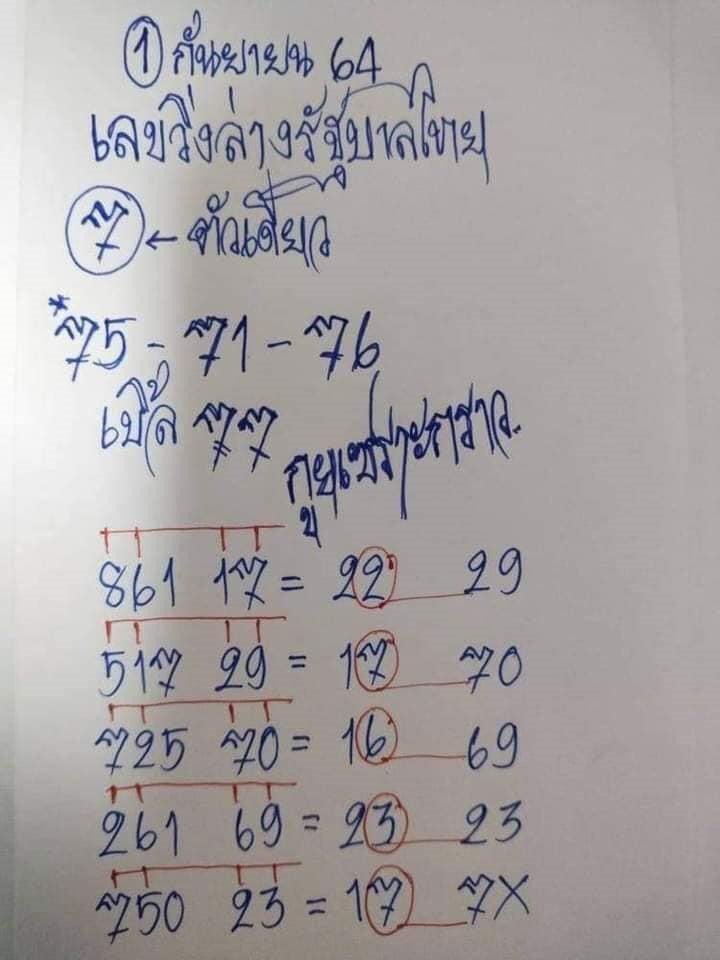 ① กันยายน 64
เลขวิ่งล่างรัฐบาลไทย
7 ← ตัวเดียว
*75 - 71 - 76
เบิ้ล 77
861 17 = 22 29
517 29 = 17 70
725 70 = 16 69
261 69 = 23 23
750 23 = 17 7X